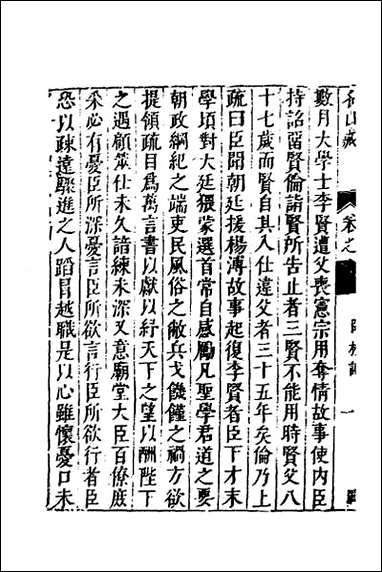 名山藏 卷之 臣林記 一
數月大學士李賢遭父喪憲宗用奪情故事使内臣
持詔留賢倫詣賢所告止者三賢不能用時賢父八
十七歲而賢自其入仕違父者三十五年矣倫乃上
疏曰臣聞朝廷援楊溥故事起復李賢者臣下才末
學頃對大廷猥蒙選首常自感勵凡聖學君道之要
朝政綱紀之端吏民風俗之敝兵戈饑饉之禍方欲
提領疏目爲萬言書以獻以紓天下之望以酬陛下
之遇顧筮仕未久諳練未深又意廟堂大臣百僚庶
采必有憂臣所深憂言臣所欲言行臣所欲行者臣
恐以疎遠驟進之人蹈冒越職是以心雖懷憂口未